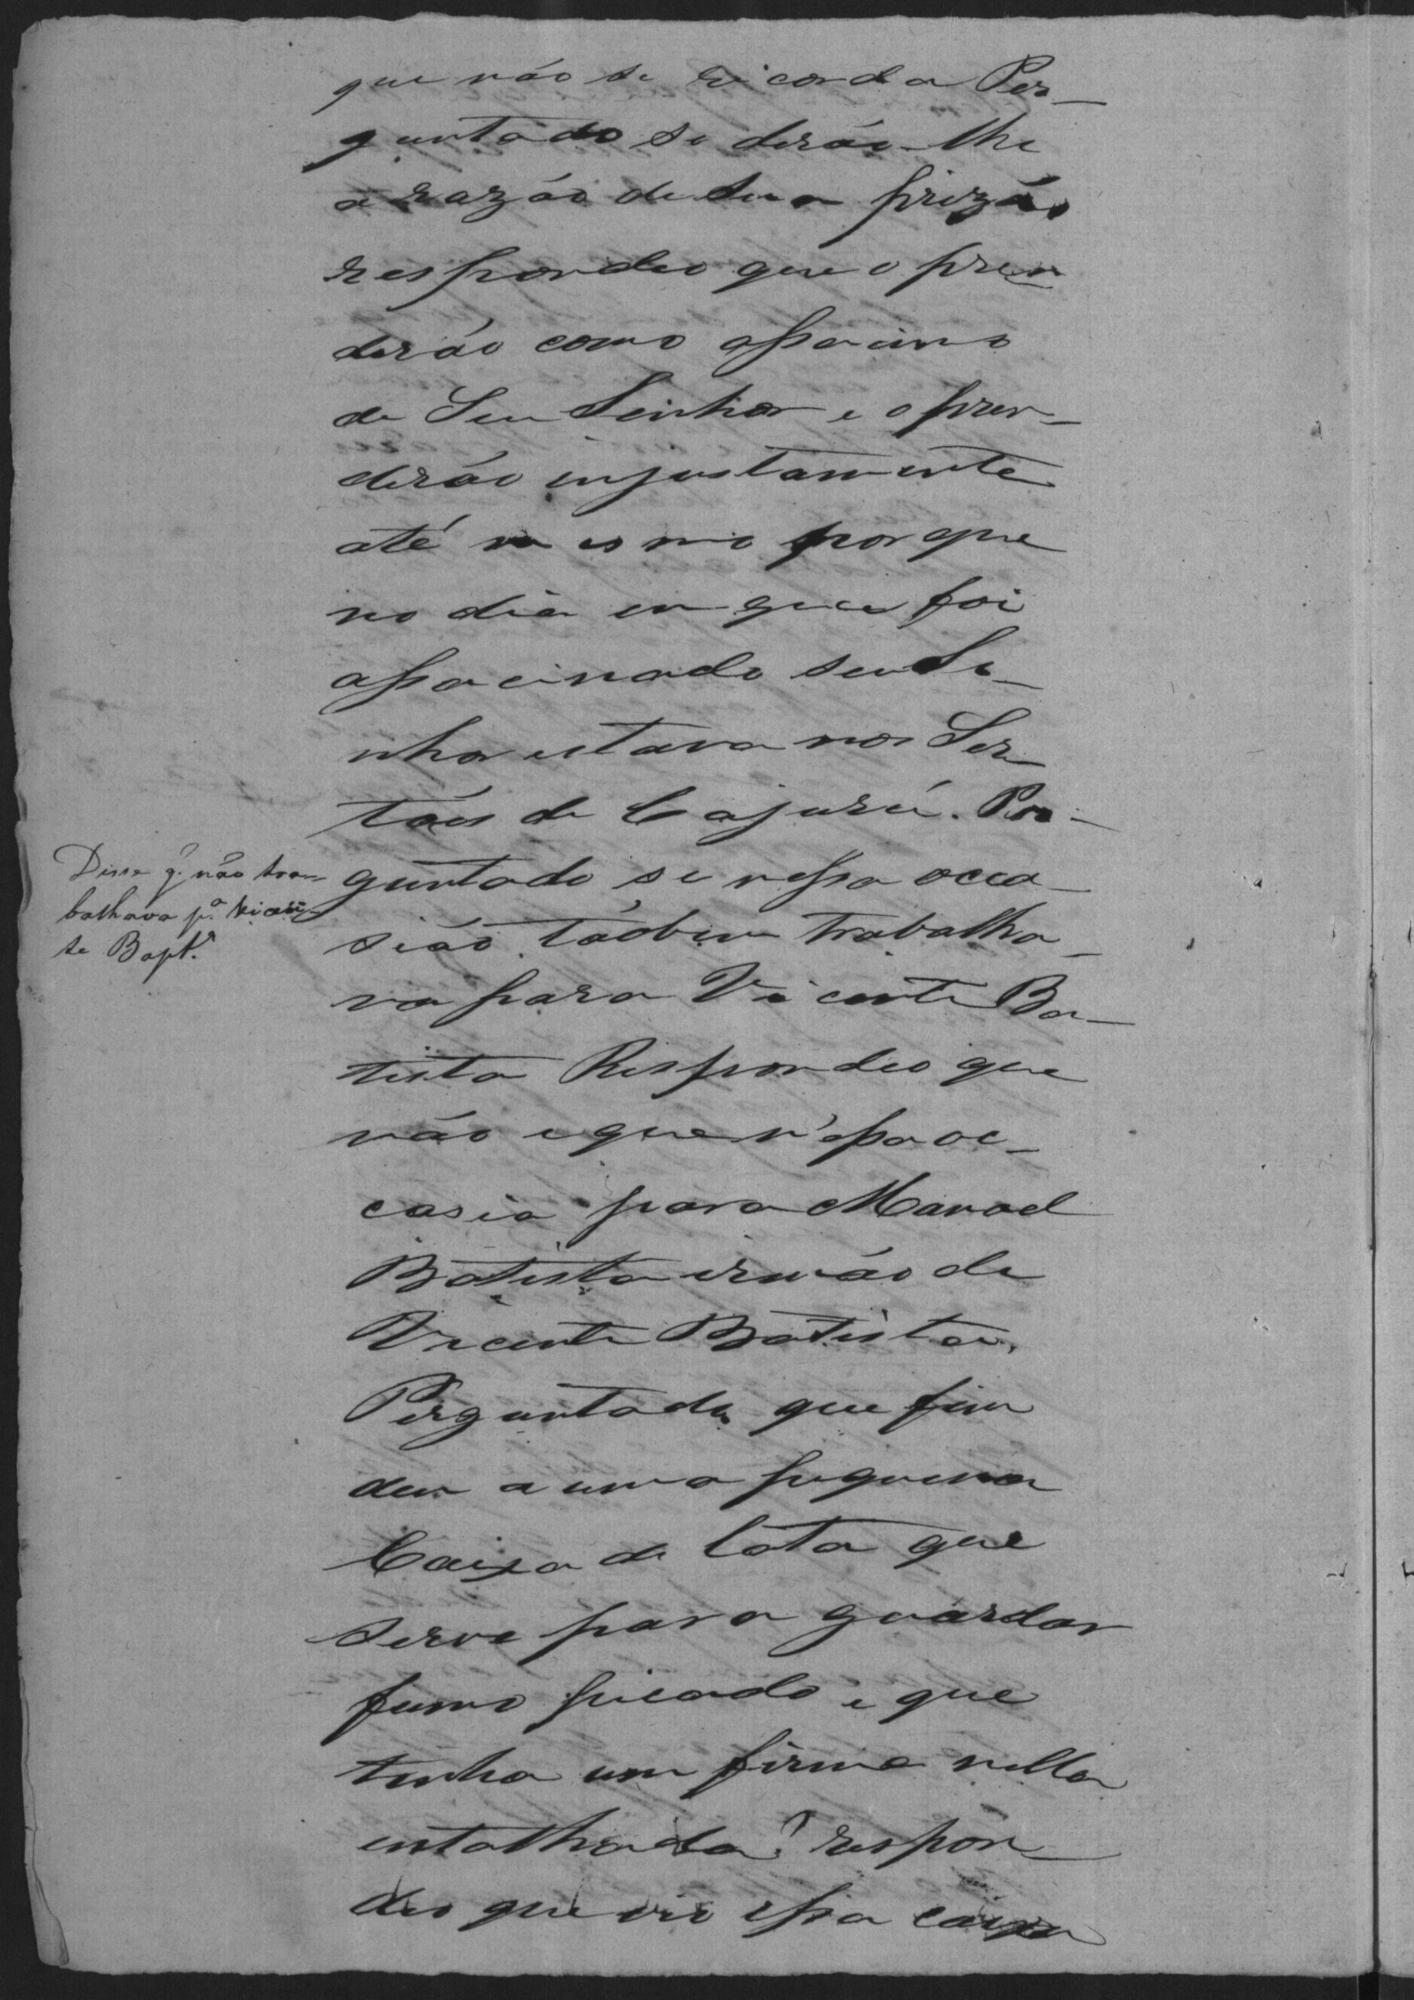 que não se ricorda Per-
guntado se derão-lhe
a razão de sua prizão
respondeo que o pren
derão como assacino
de Seu Senhor e o pren-
derão injustamente
até mesmo porque
no dia em que foi
assacinado seu Se-
nhor estava nos Ser-
tões de Cajurú. Per-
guntado se nessa occa-
sião tãobem trabalha-
va para Vicente Ba-
tista Respondeo que
não e que n'essa oc-
casia para Manoel
Batista irmão de
Vicente Batista.
Perguntado que fim
deu a uma pequena
Caixa de lata que
serve para guardar
fumo picado e que
tinha um firme nella
entalhada? respon-
deo que vio essa caixa
Disse q. não tra-
balhava p.ª Vicen-
te Bapt.ª